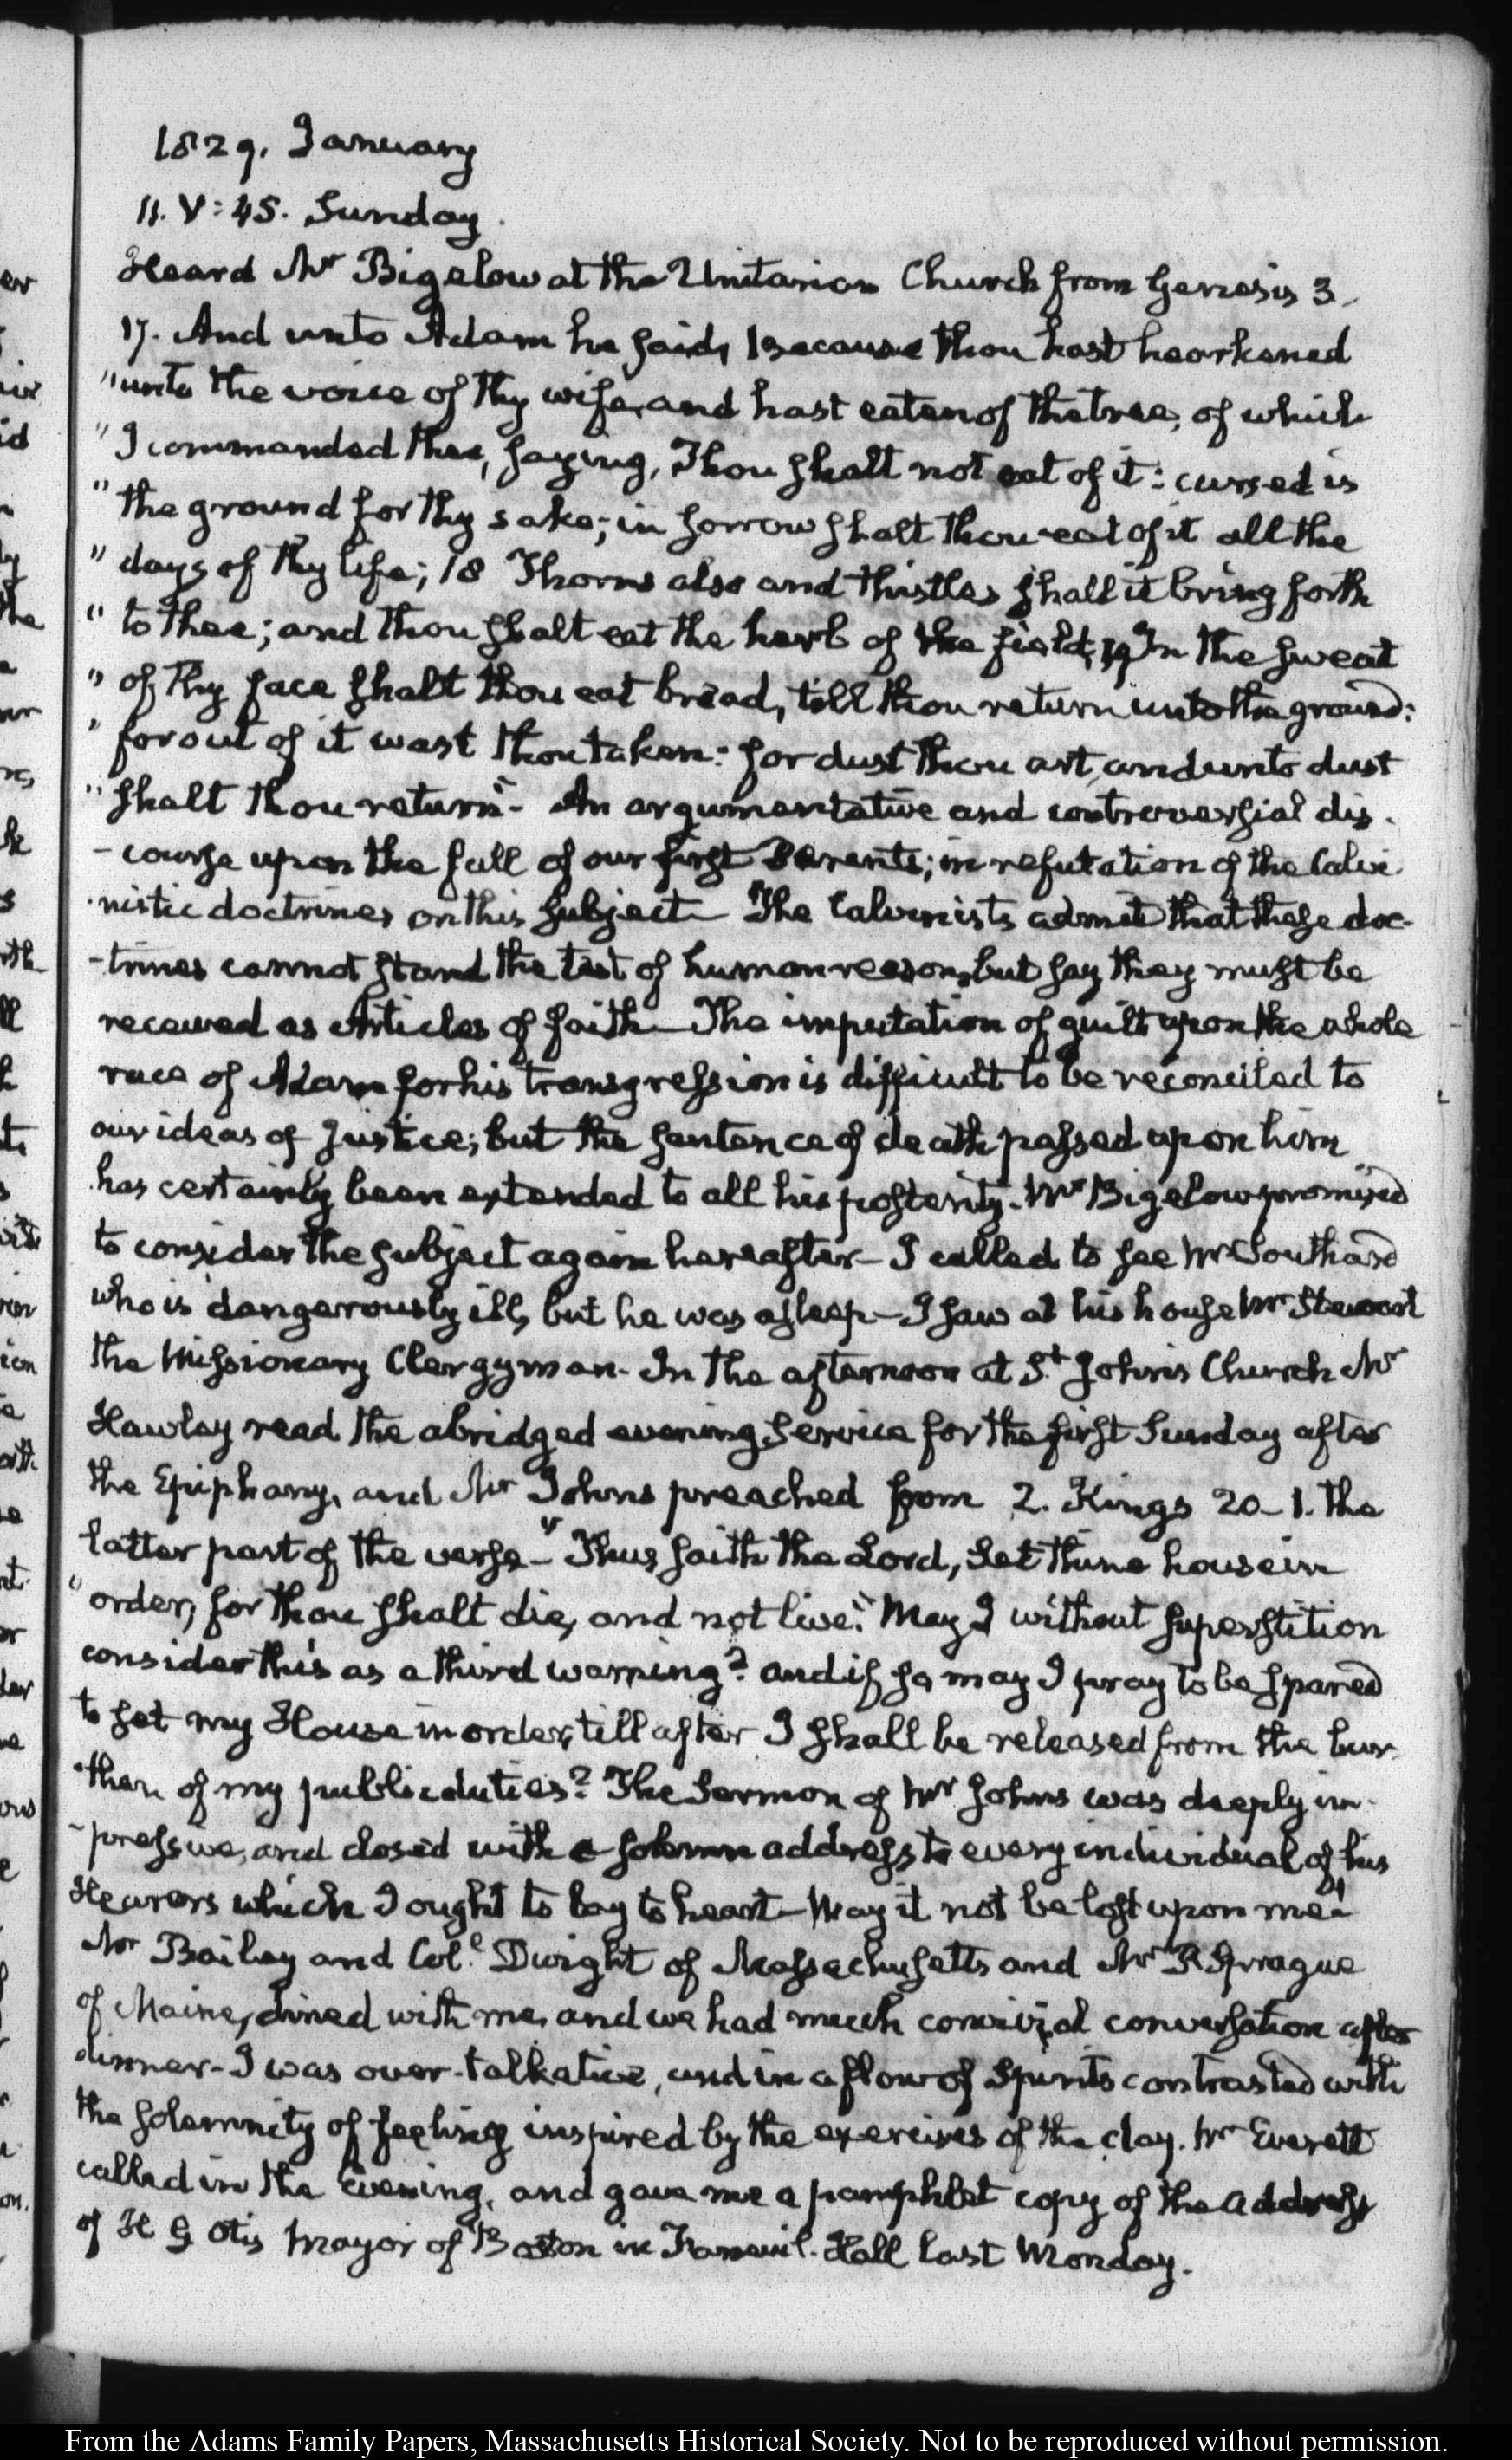 1829. January
11. V:45. Sunday.
Heard Mr Bigelow at the Unitarian Church from Genesis 3.
17. And unto Adam he said, Because thou hast hearkened
"unto the voice of thy wife, and hast eaten of the tree, of which
"I commanded thee, saying, Thou shalt not eat of it: cursed is
"the ground for thy sake; in sorrow shalt thou eat of it all the
"days of thy life; 18 Thorns also and thistles shall it bring forth
"to thee; and thou shalt eat the herb of the field, 19 In the sweat
"of thy face shalt thou eat bread, till thou return unto the ground:
"for out of it wast thou taken: for dust thou art, and unto dust
"shalt thou return"- An argumentative and controversial dis-
-course upon the fall of our first Parents; in refutation of the Calvi-
-nistic doctrines on this subject- The Calvinists admit that these doc-
-trines cannot stand the test of human reason, but say they must be
received as Articles of faith- The imputation of guilt upon the whole
race of Adam for his transgression is difficult to be reconciled to
our ideas of Justice; but the sentence of death passed upon him
has certainly been extended to all his posterity. Mr Bigelow promised
to consider the subject again hereafter- I called to see Mr Southard
who is dangerously ill, but he was asleep- I saw at his house Mr Stewart
the Missionary Clergyman. In the afternoon at St. John's Church Mr
Hawley read the abridged evening service for the first Sunday after
the Epiphany, and Mr Johns preached from 2. Kings 20-1. the
latter part of the verse- "Thus saith the Lord, Set thine house in
"order, for thou shalt die, and not live." May I without superstition
consider this as a third warning? and if so, may I pray to be spared
to set my House in order, till after I shall be released from the bur-
-then of my public duties? The Sermon of Mr Johns was deeply im-
-pressive, and closed with a solemn address to every individual of his
Hearers which I ought to lay to heart- May it not be lost upon me!
Mr Bailey and Col.l Dwight of Massachusetts and Mr P. Sprague
of Maine, dined with me, and we had much convivial conversation after
dinner- I was over-talkative, and in a flow of Spirits contrasted with
the solemnity of feeling inspired by the exercises of the day. Mr Everett
called in the Evening, and gave me a pamphlet copy of the address
of H G Otis Mayor of Boston in Faneuil-Hall last Monday.
From the Adams Family Papers, Massachusetts Historical Society. Not to be reproduced without permission.